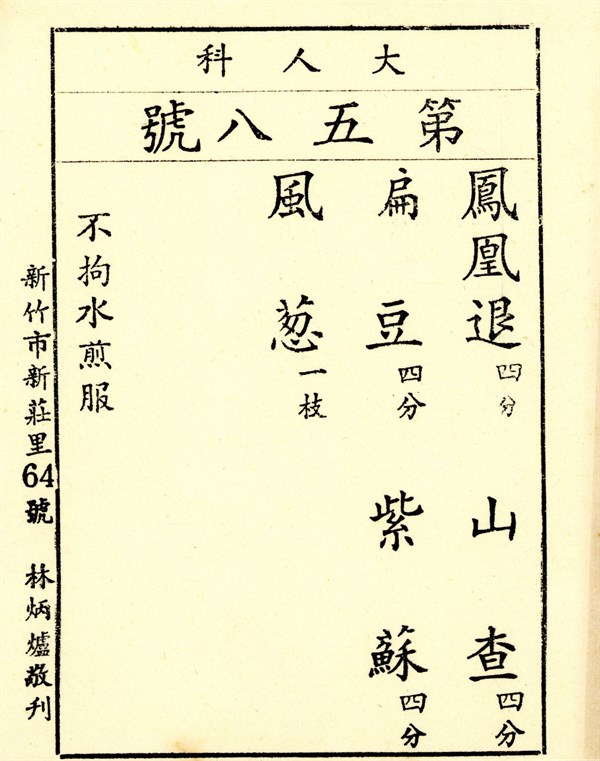 大人科
第五八號
鳳凰退四分 山查四分
扁豆四分 紫蘇四分
風葱一枝
不拘水煎服
新竹市新莊里64號 林炳爐敬刋